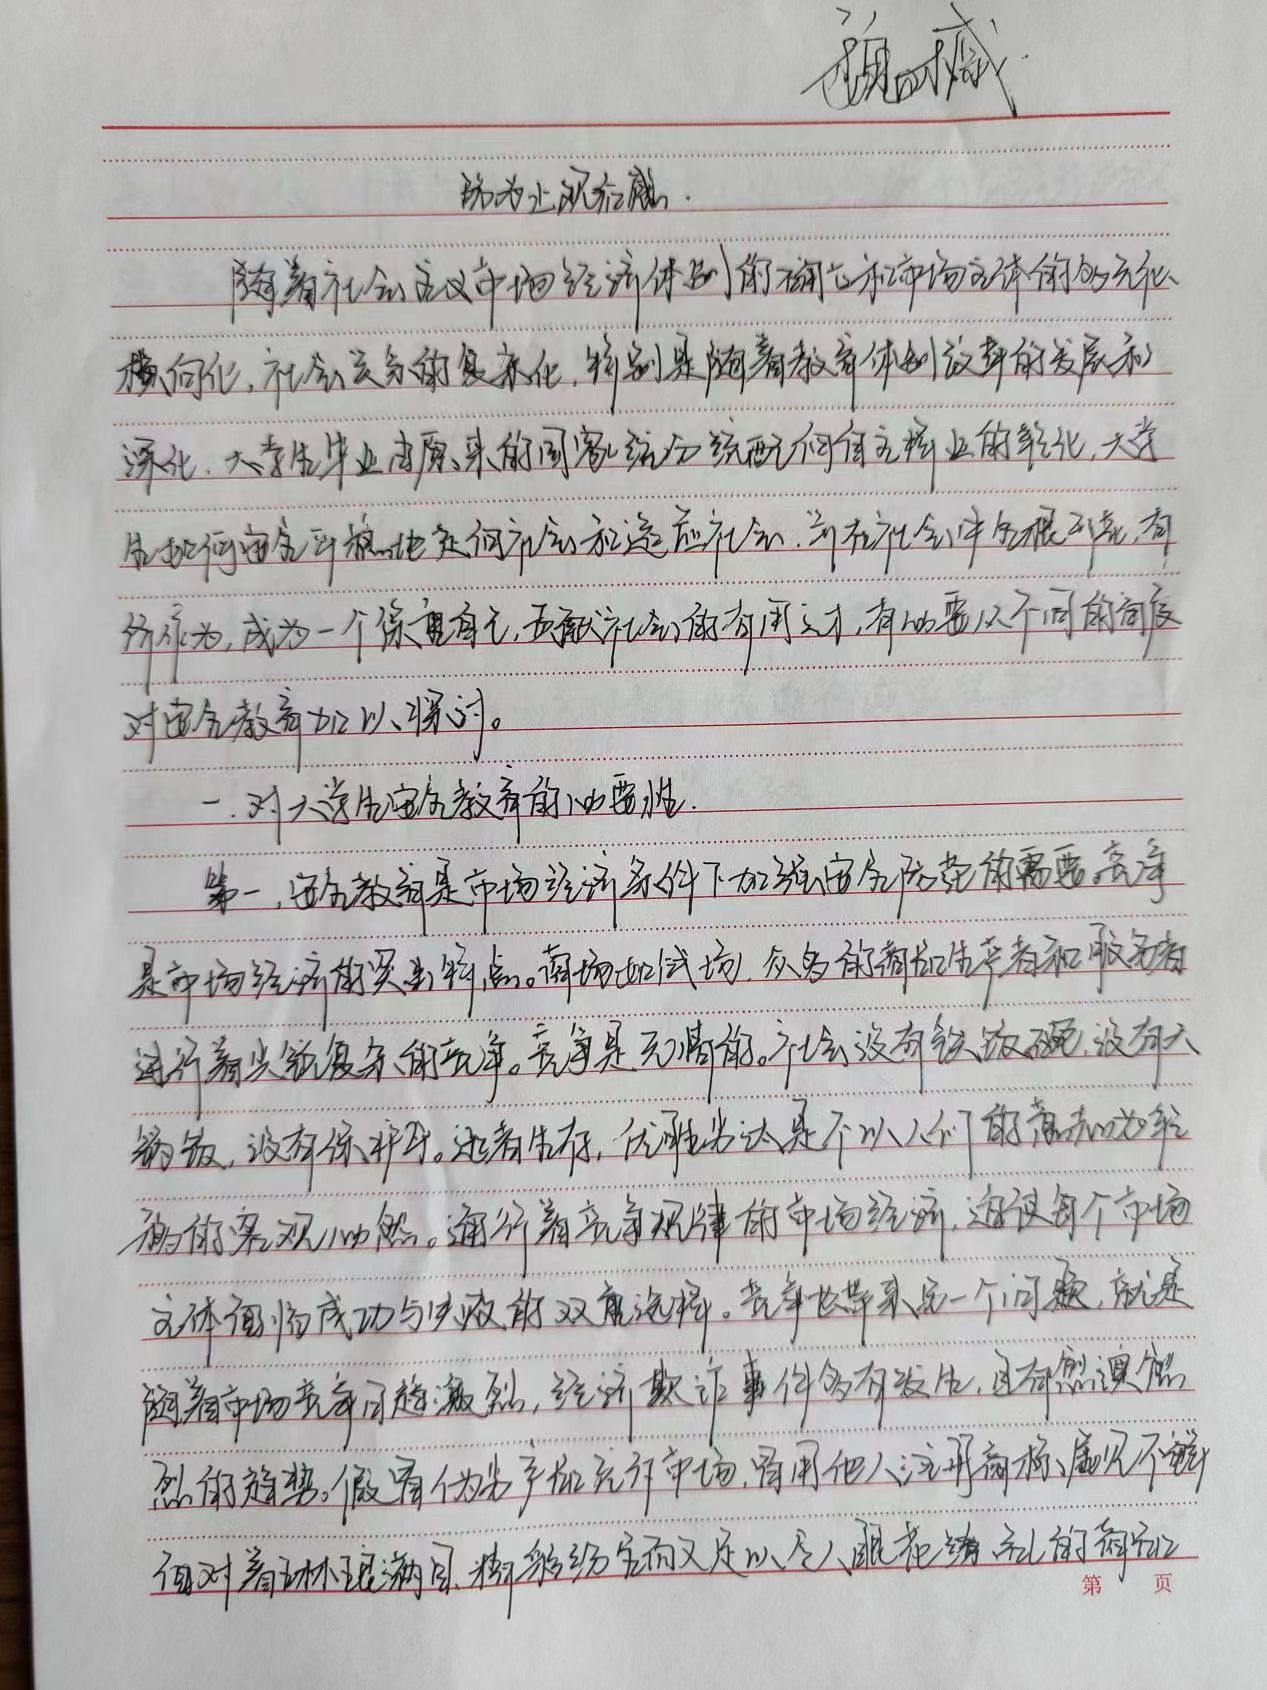 防为上观后感.
随着社会主义市场经济体制的确立和市场主体的多元化、
横向化,社会关系的复杂化,特别是随着教育体制改革的发展和
深化、大学生毕业由原来的国家统分统配向自主择业的转化,大学
生如何安全平稳地走向社会和适应社会、并在社会中生根开花,有
所作为,成为一个保重自己,贡献社会的有用之才,有必要从不同的角度
对安全教育加以探讨。
一.对大学生安全教育的必要性.
第一,安全教育是市场经济条件下加强安全防范的需要。竞争
是市场经济的突出特点。商场如战场,众多的商品生产者和服务者
进行着尖锐复杂的竞争。竞争是无情的。社会没有铁饭碗,没有大
锅饭,没有保护伞。适者生存,优胜劣汰是不以人们的意志为转
移的客观必然。通行着竞争规律的市场经济,迫使每个市场
主体面临成功与失败的双重选择。竞争也带来另一个问题,就是
随着市场竞争日趋激烈,经济欺诈事件多有发生,且有愈演愈
烈的趋势。假冒伪劣产品充斥市场,冒用他人注册商标、屡见不鲜
面对着琳琅满目、精彩纷呈而又足以令人眼花缭乱的商品
第 页